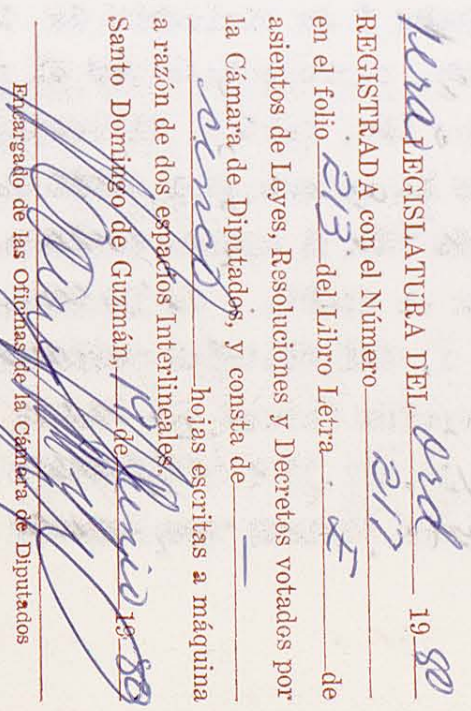 1era LEGISLATURA DEL ord 1980
REGISTRADA con el Número 217
en el folio 213 del Libro Letra de
asientos de Leyes, Resoluciones y Decretos votados por
la Cámara de Diputados, y consta de
cinco hojas escritas a máquina
a razón de dos espacios Interlineales.
Santo Domingo de Guzmán, de Junio 1980
Encargado de las Oficinas de la Cámara de Diputados